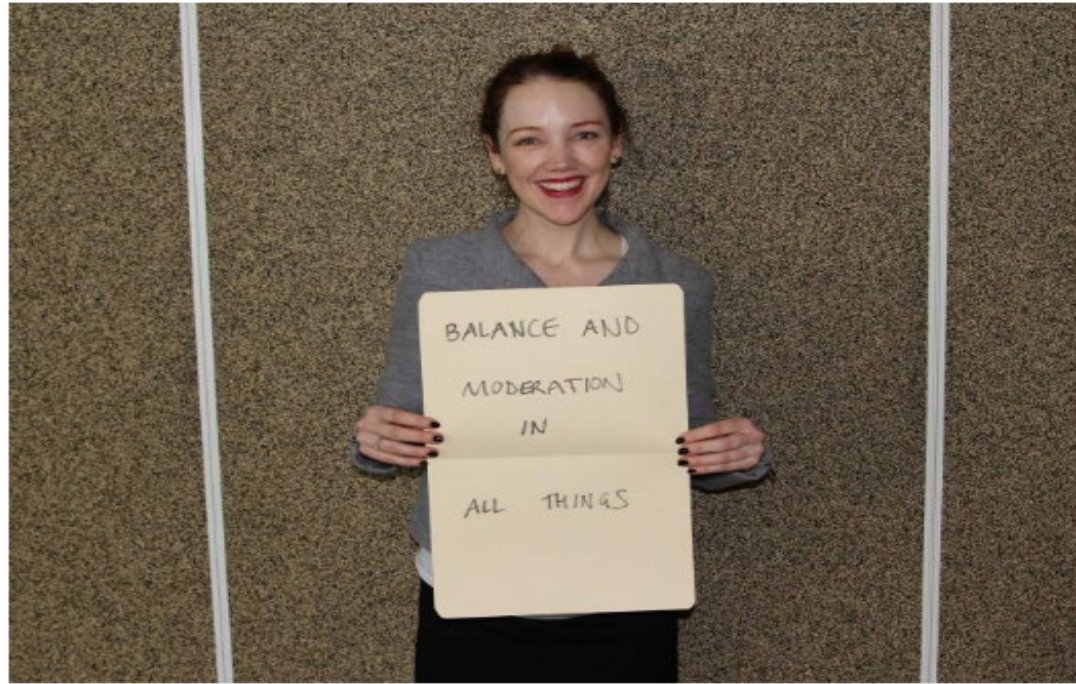 BALANCE AND
MODERATION
IN
ALL THINGS